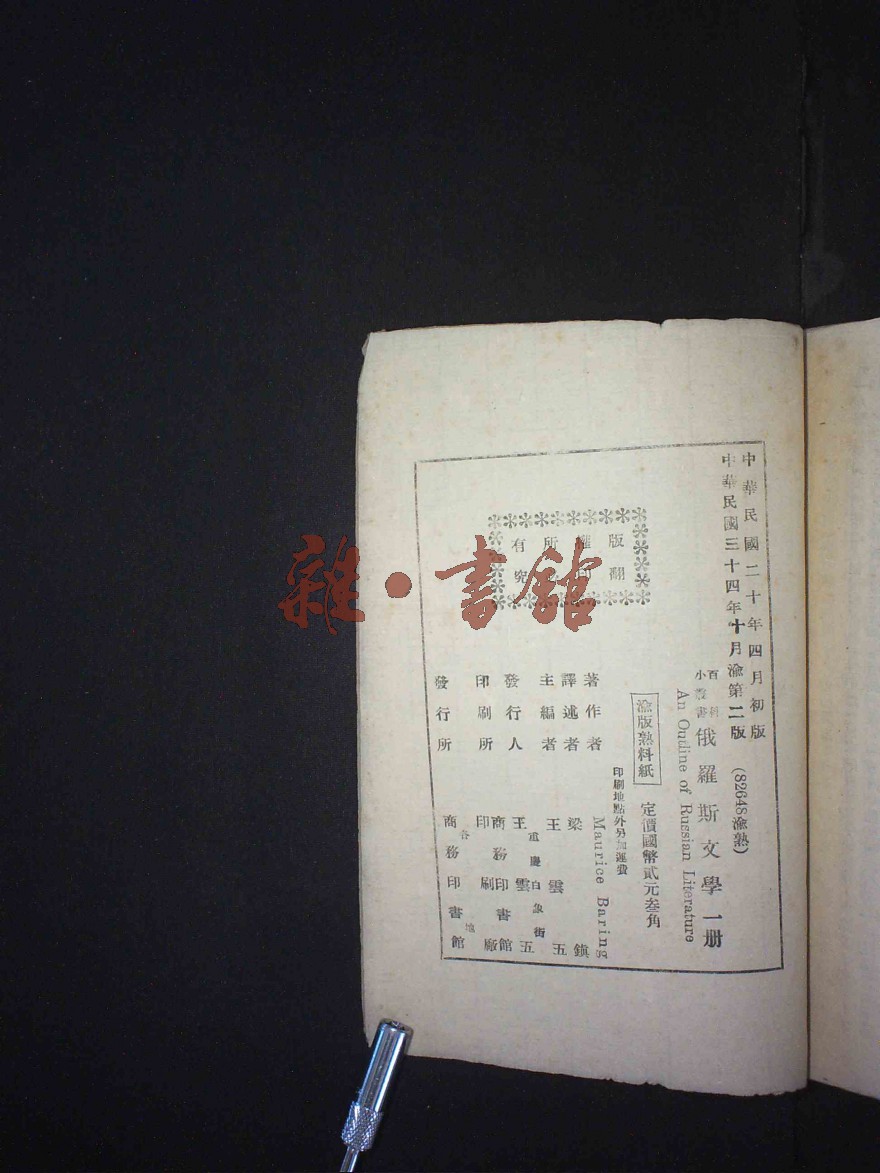 中華民國二十年四月初版
中華民國三十四年十月渝第二版
(82648渝熟)
百科
小叢書
俄羅斯文學一册
An Outline of Russian Literature
渝版熟料紙
定價國幣貳元叁角
印刷地點外另加運費
版權所有
翻印 究
著作者 Maurice Baring
譯述者 梁鎮
主編者 王雲五
重慶白象街
發行人 王雲五
印刷所 商務印書館
印刷廠
發行所 各地
商務印書館
雜·書館